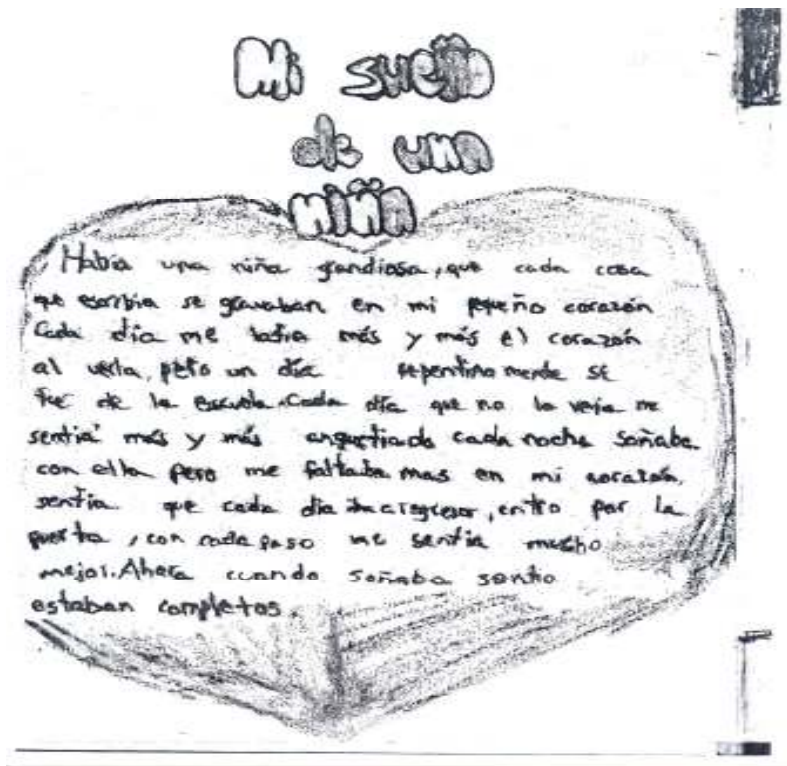 Mi sueño
de una
niña
Había una niña grandiosa, que cada cosa
que escribia se gravaban en mi pequeño corazón
Cada día me latia más y más el corazón
al verla, pero un día repentina mente se
fue de la escuela. Cada día que no la veia me
sentia más y más angustiado cada noche soñaba
con ella pero me faltaba mas en mi corazón,
sentia que cada dia iba a regresar, entro por la
puerta, con cada paso me sentia mucho
mejor. Ahora cuando soñaba
estaban completos.